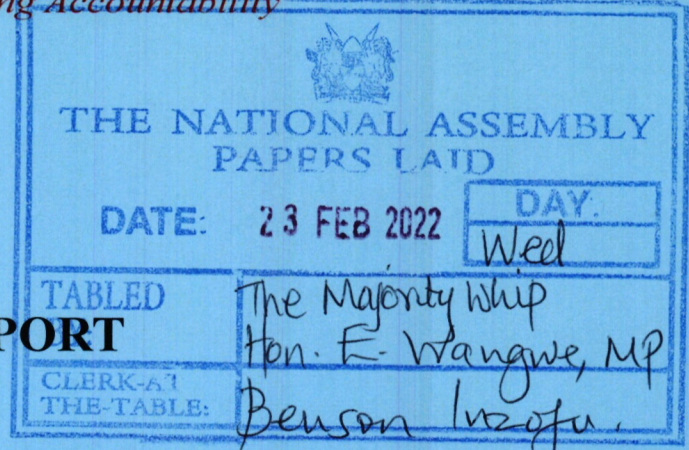 ng Accountability
THE NATIONAL ASSEMBLY
PAPERS LAID
DATE: 23 FEB 2022 DAY:
Wed
TABLED The Majority Whip
BY: Hon. E. Wangwe, MP
PORT
CLERK-AT
THE-TABLE: Benson Inzofu.